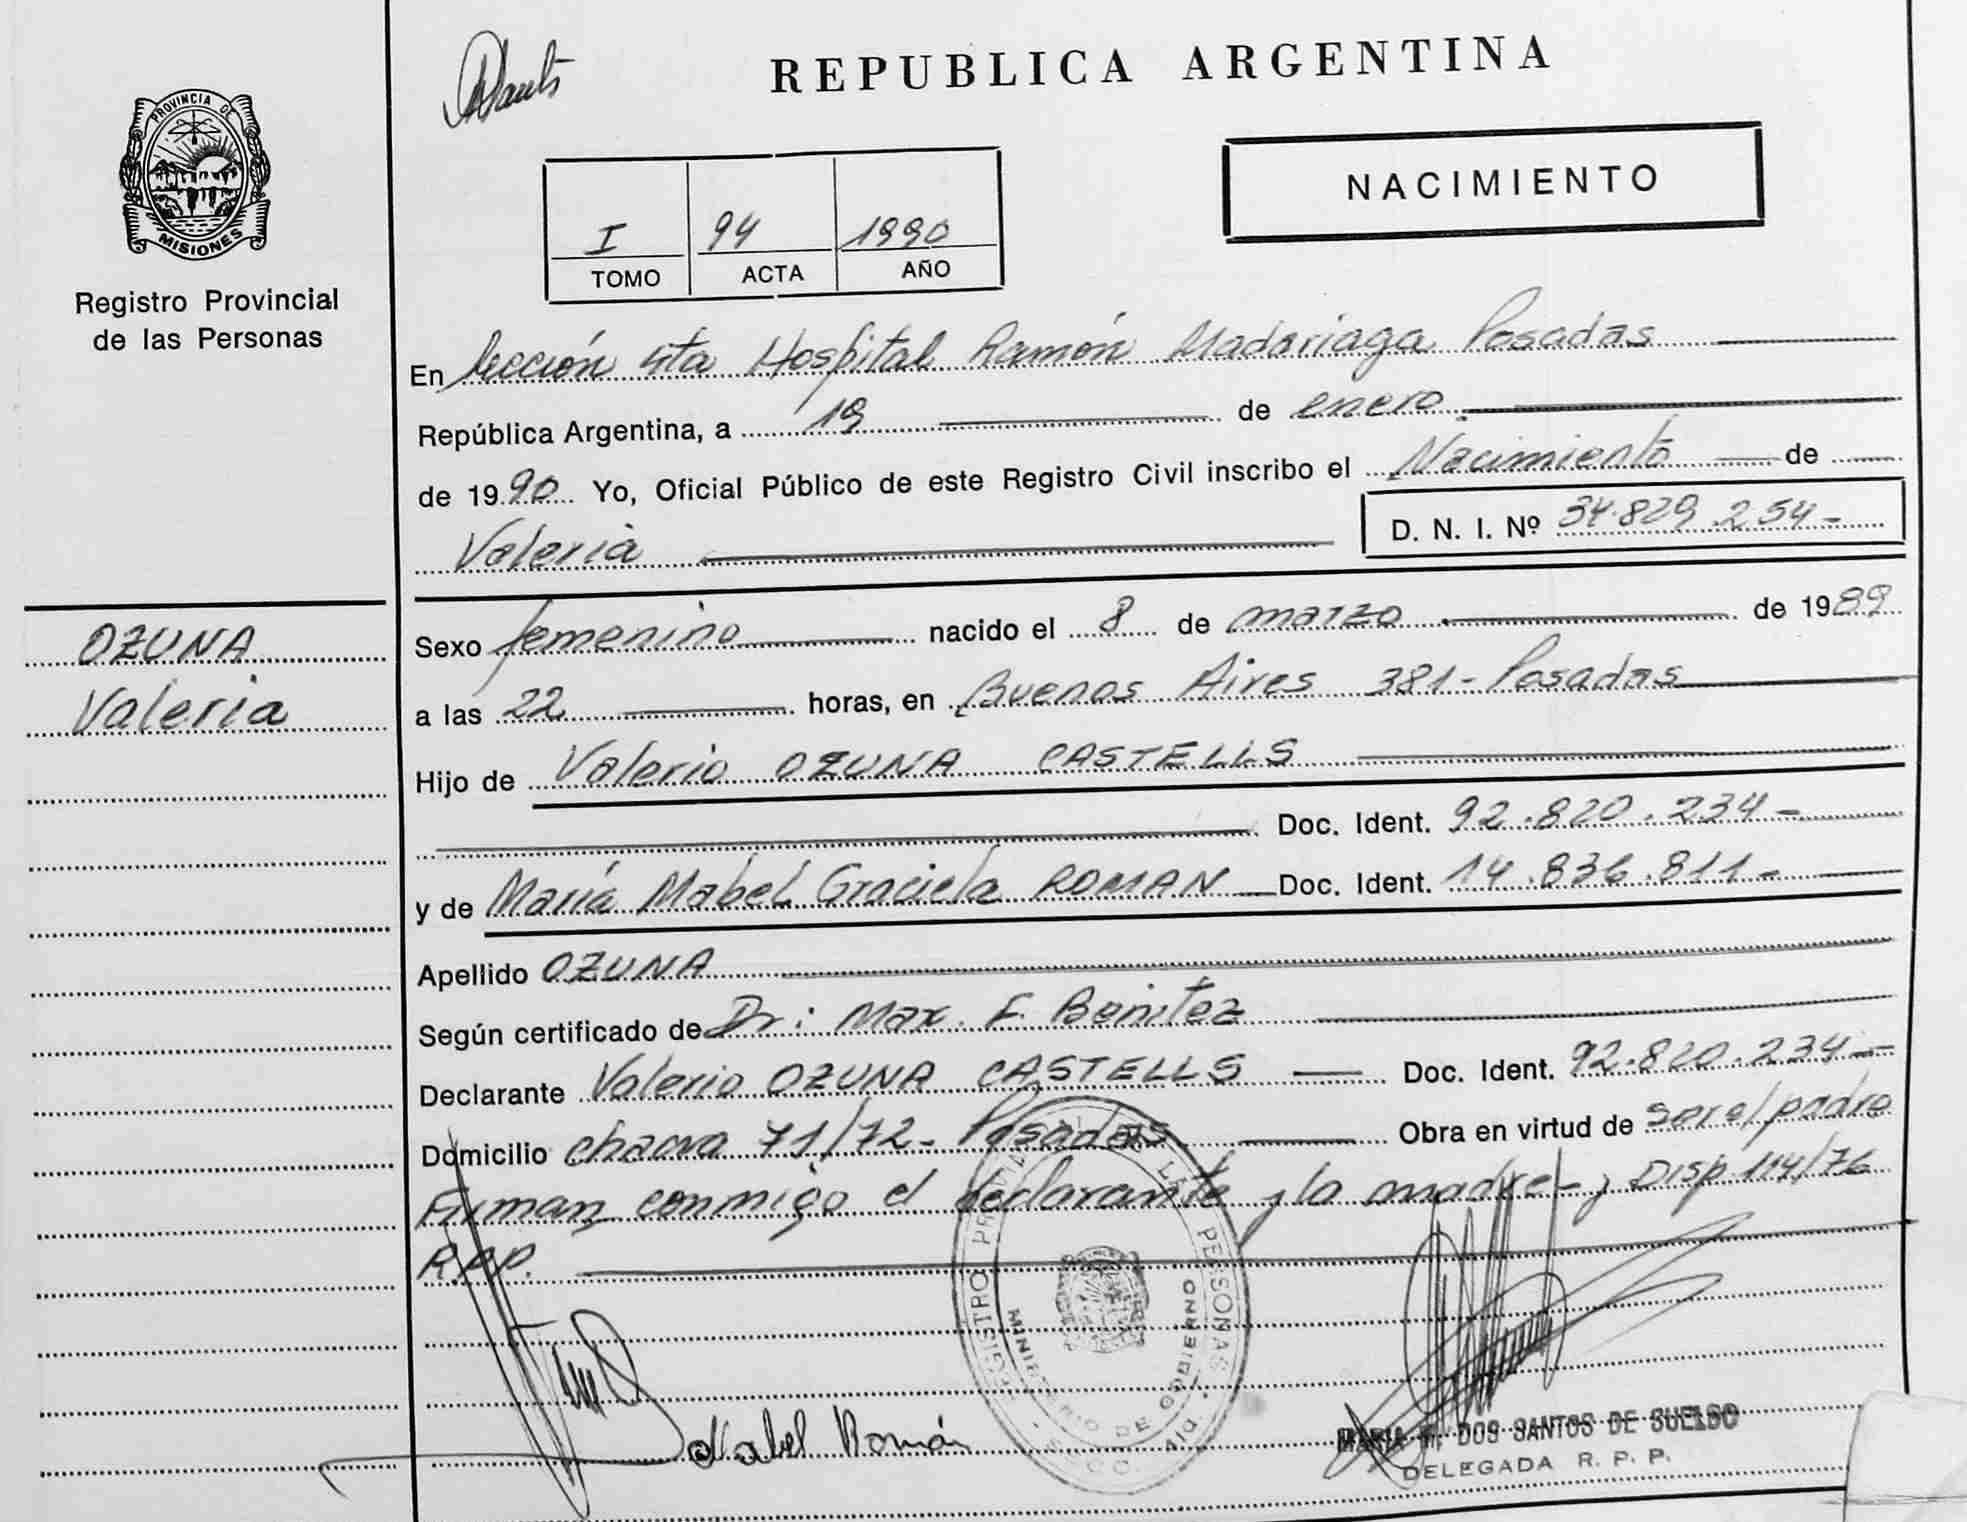 REPUBLICA ARGENTINA
PROVINCIA DE
MISIONES
Registro Provincial
de las Personas
NACIMIENTO
I 94 1990
TOMO ACTA AÑO
En Sección 4ta Hospital Ramón Madariaga Posadas
República Argentina, a 19 de enero
de 1990 Yo, Oficial Público de este Registro Civil inscribo el Nacimiento de
Valeria D. N. I. Nº 34.829.254-
OZUNA
Valeria
Sexo femenino nacido el 8 de marzo de 1989
a las 22 horas, en Buenos Aires 381 - Posadas
Hijo de Valerio OZUNA CASTELLS
Doc. Ident. 92.820.234-
y de María Mabel Graciela ROMAN Doc. Ident. 14.836.811-
Apellido OZUNA
Según certificado de Dr: Max. F. Benitez
Declarante Valerio OZUNA CASTELLS Doc. Ident. 92.820.234-
Domicilio chacra 71/72- Posadas Obra en virtud de ser el padre
Firman conmigo el declarante y la madre-; Disp. 114/76
R.P.P.
REGISTRO PROVINCIAL DE LAS PERSONAS
MINISTERIO DE GOBIERNO
Mabel Román
MARIA M. DOS SANTOS DE SUELDO
DELEGADA R. P. P.